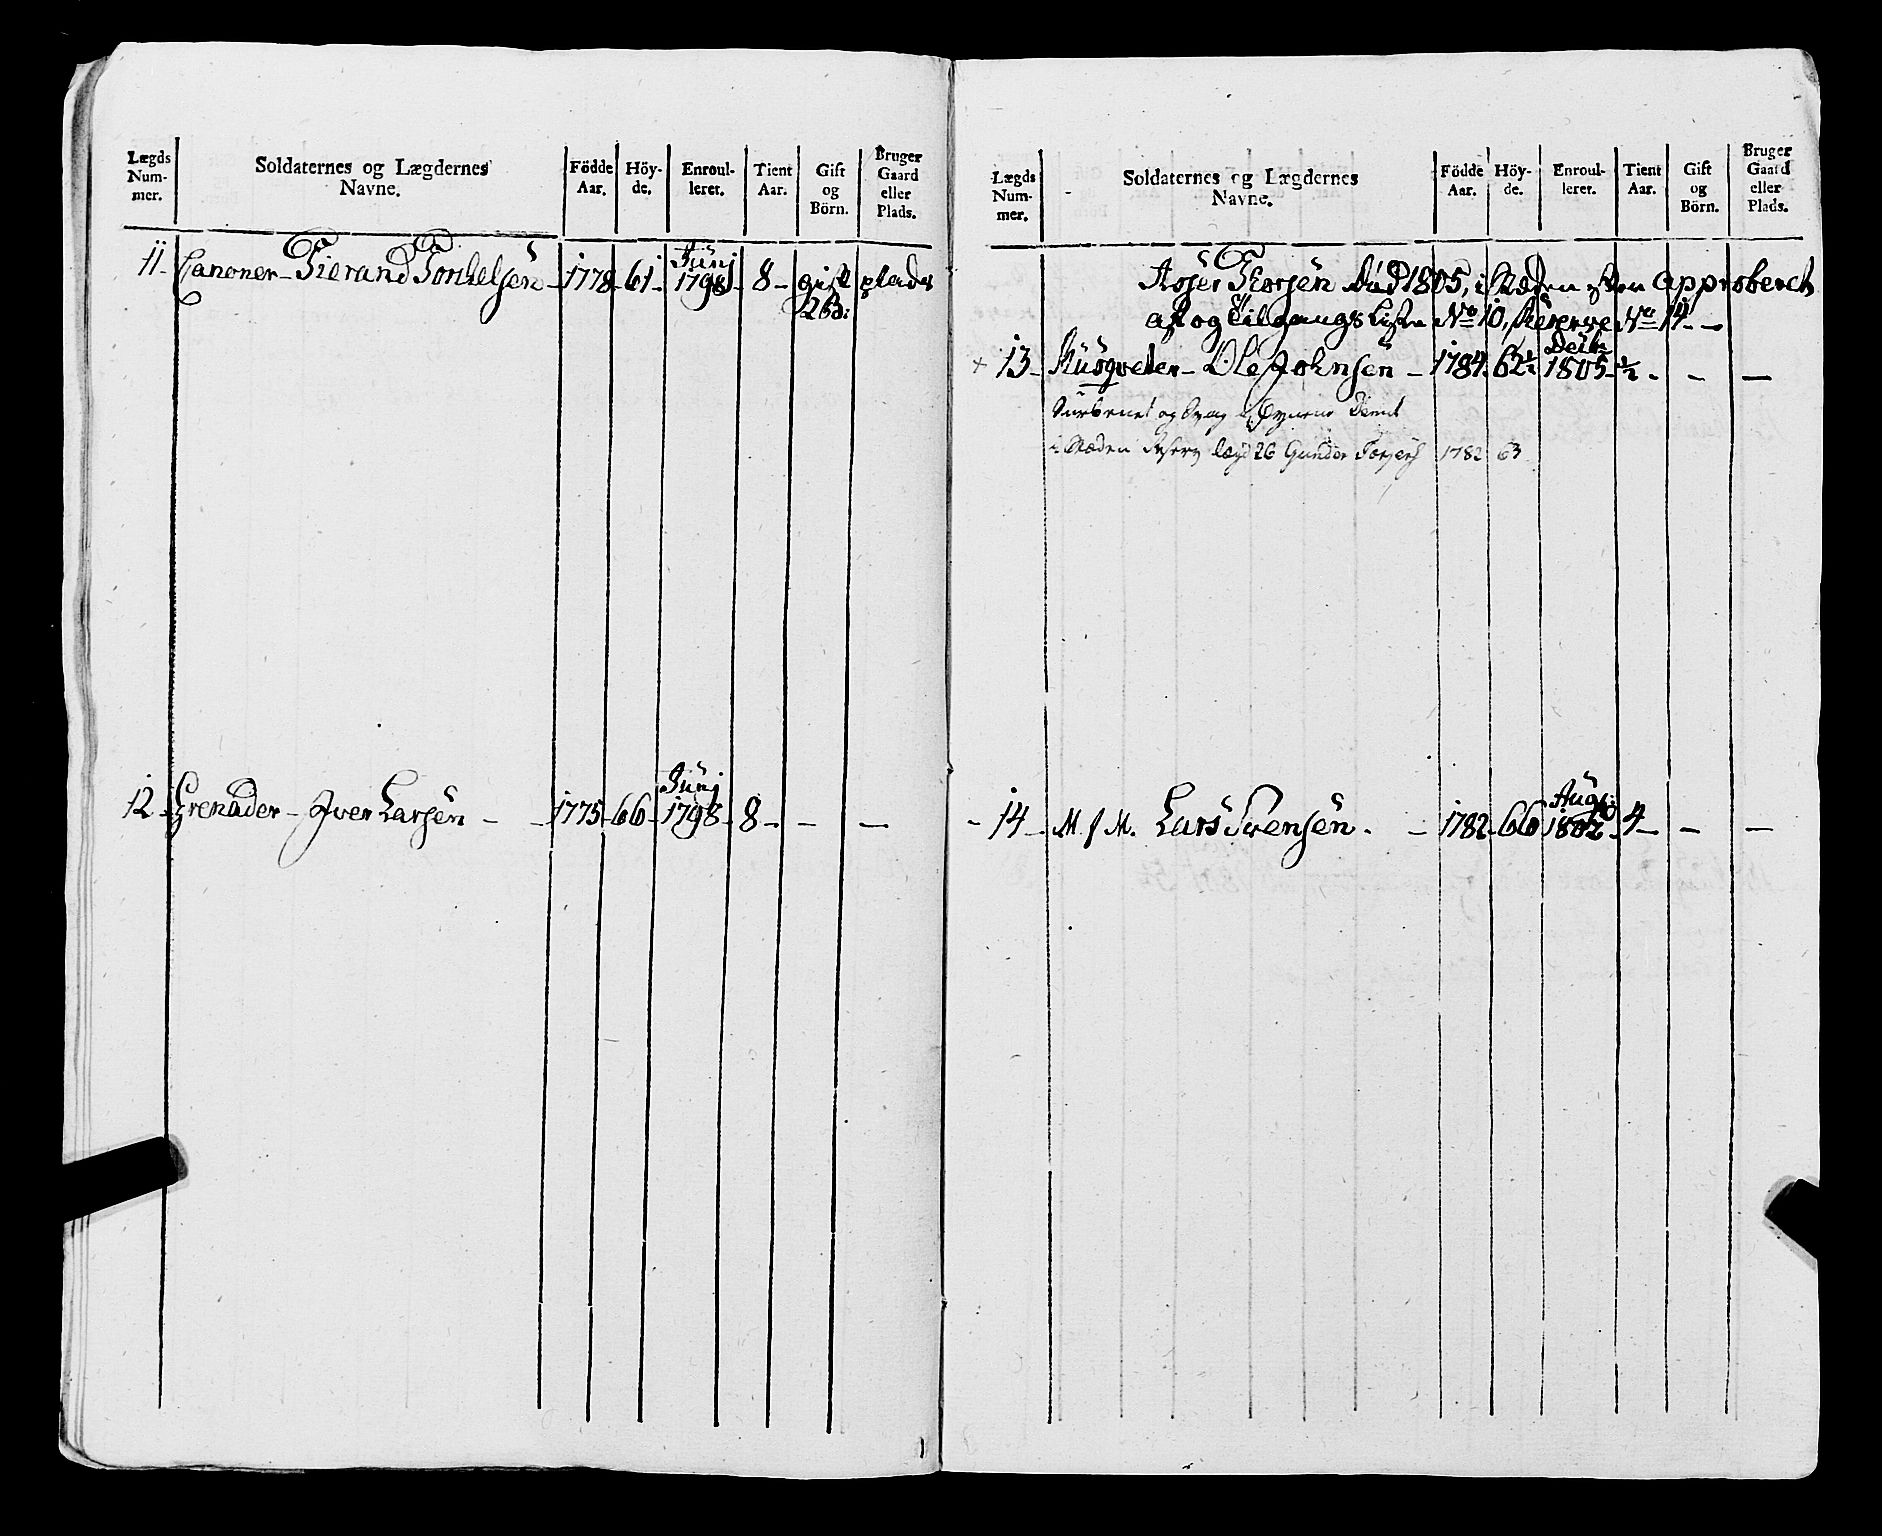 Lægds Num-mer. Soldaternes og Lægdernes Navne. Födde Aar. Höy-de. Enroul-leret. Tient Aar. Gift og Börn. Bruger Gaard eller Plads.
11 Canoner Tierand Torkelsen 1778 61 Junj 1798 8 gift 2 B: plads
12 Grenader Iver Larsen 1775 66 Junj 1798 8
Lægds Num-mer. Soldaternes og Lægdernes Navne. Födde Aar. Höy-de. Enroul-leret. Tient Aar. Gift og Börn. Bruger Gaard eller Plads.
död 1805, i Stæden efter approberet
af og tilgangs Liste No 10, Reserve No 14
13 Musqveter Ole Johnsen 1784 62½ Decbr 1805 ½
og Svag i Öynene
i Stæden Reserv lægd 26 Gunder 1782 63
14 M J M. Lars Svensen 1782 66 Aug: 1802 4